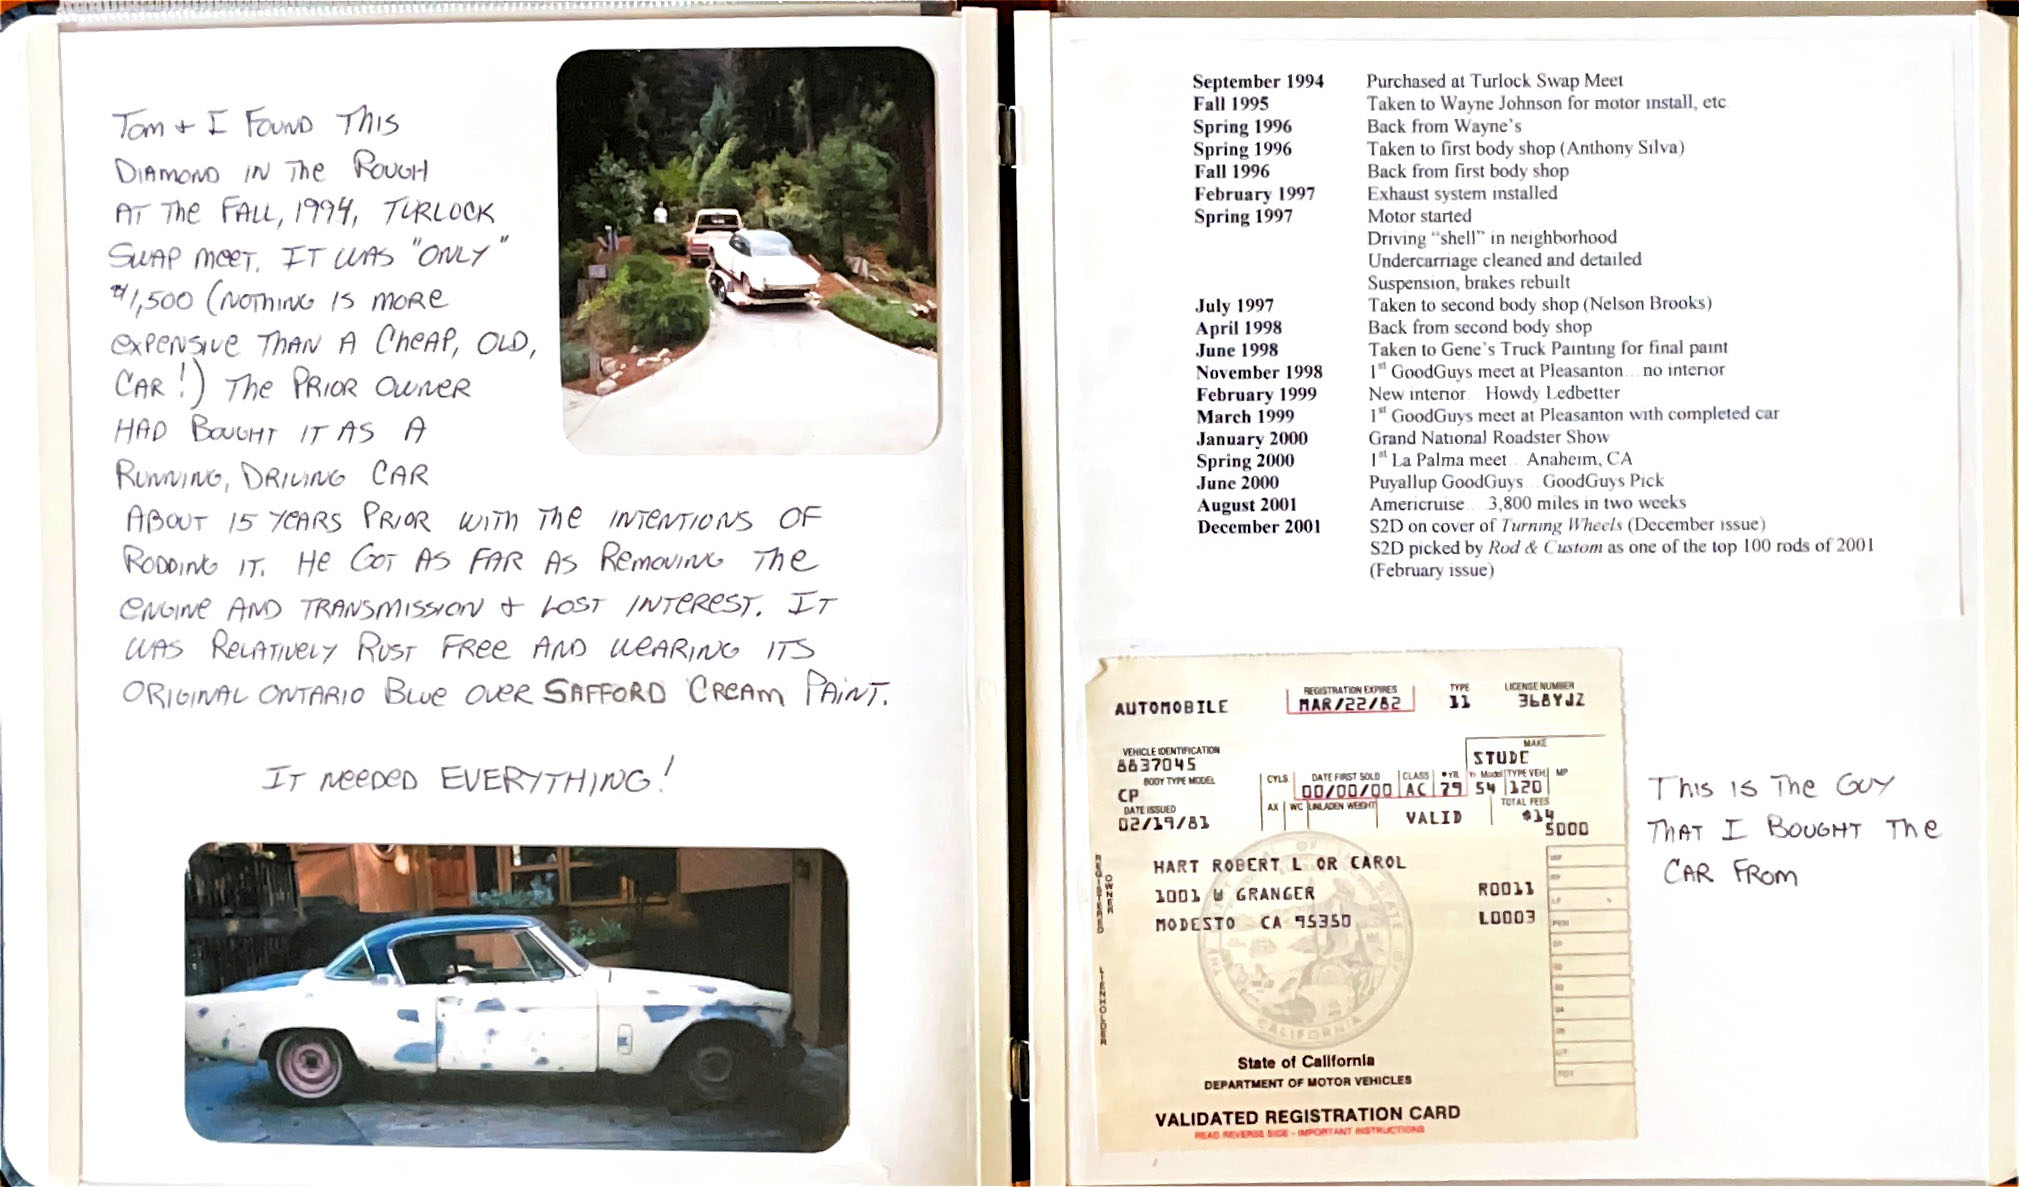 Tom + I Found This
Diamond in the Rough
at the Fall, 1994, Turlock
Swap meet. It was "only"
$1,500 (nothing is more
expensive than a cheap, old,
car!) The prior owner
had bought it as a
running, driving car
about 15 years prior with the intentions of
rodding it. He got as far as removing the
engine and transmission + lost interest. It
was relatively rust free and wearing its
original Ontario Blue over Safford Cream paint.
It needed EVERYTHING!
September 1994 Purchased at Turlock Swap Meet
Fall 1995 Taken to Wayne Johnson for motor install, etc
Spring 1996 Back from Wayne's
Spring 1996 Taken to first body shop (Anthony Silva)
Fall 1996 Back from first body shop
February 1997 Exhaust system installed
Spring 1997 Motor started
Driving "shell" in neighborhood
Undercarriage cleaned and detailed
Suspension, brakes rebuilt
July 1997 Taken to second body shop (Nelson Brooks)
April 1998 Back from second body shop
June 1998 Taken to Gene's Truck Painting for final paint
November 1998 1st GoodGuys meet at Pleasanton...no interior
February 1999 New interior...Howdy Ledbetter
March 1999 1st GoodGuys meet at Pleasanton with completed car
January 2000 Grand National Roadster Show
Spring 2000 1st La Palma meet...Anaheim, CA
June 2000 Puyallup GoodGuys...GoodGuys Pick
August 2001 Americruise...3,800 miles in two weeks
December 2001 S2D on cover of Turning Wheels (December issue)
S2D picked by Rod & Custom as one of the top 100 rods of 2001
(February issue)
AUTOMOBILE REGISTRATION EXPIRES MAR/22/82 TYPE 11 LICENSE NUMBER 368YJZ
VEHICLE IDENTIFICATION MAKE
8837045 STUDE
BODY TYPE MODEL CYLS DATE FIRST SOLD CLASS *YR Yr Model TYPE VEH MP
CP 00/00/00 AC 79 54 120
DATE ISSUED AX WC UNLADEN WEIGHT TOTAL FEES
02/19/81 VALID $14
5000
REGISTERED OWNER
HART ROBERT L OR CAROL
1001 W GRANGER R0011
MODESTO CA 95350 L0003
LIENHOLDER
CALIFORNIA
State of California
DEPARTMENT OF MOTOR VEHICLES
VALIDATED REGISTRATION CARD
READ REVERSE SIDE - IMPORTANT INSTRUCTIONS
This is the guy
that I bought the
car from